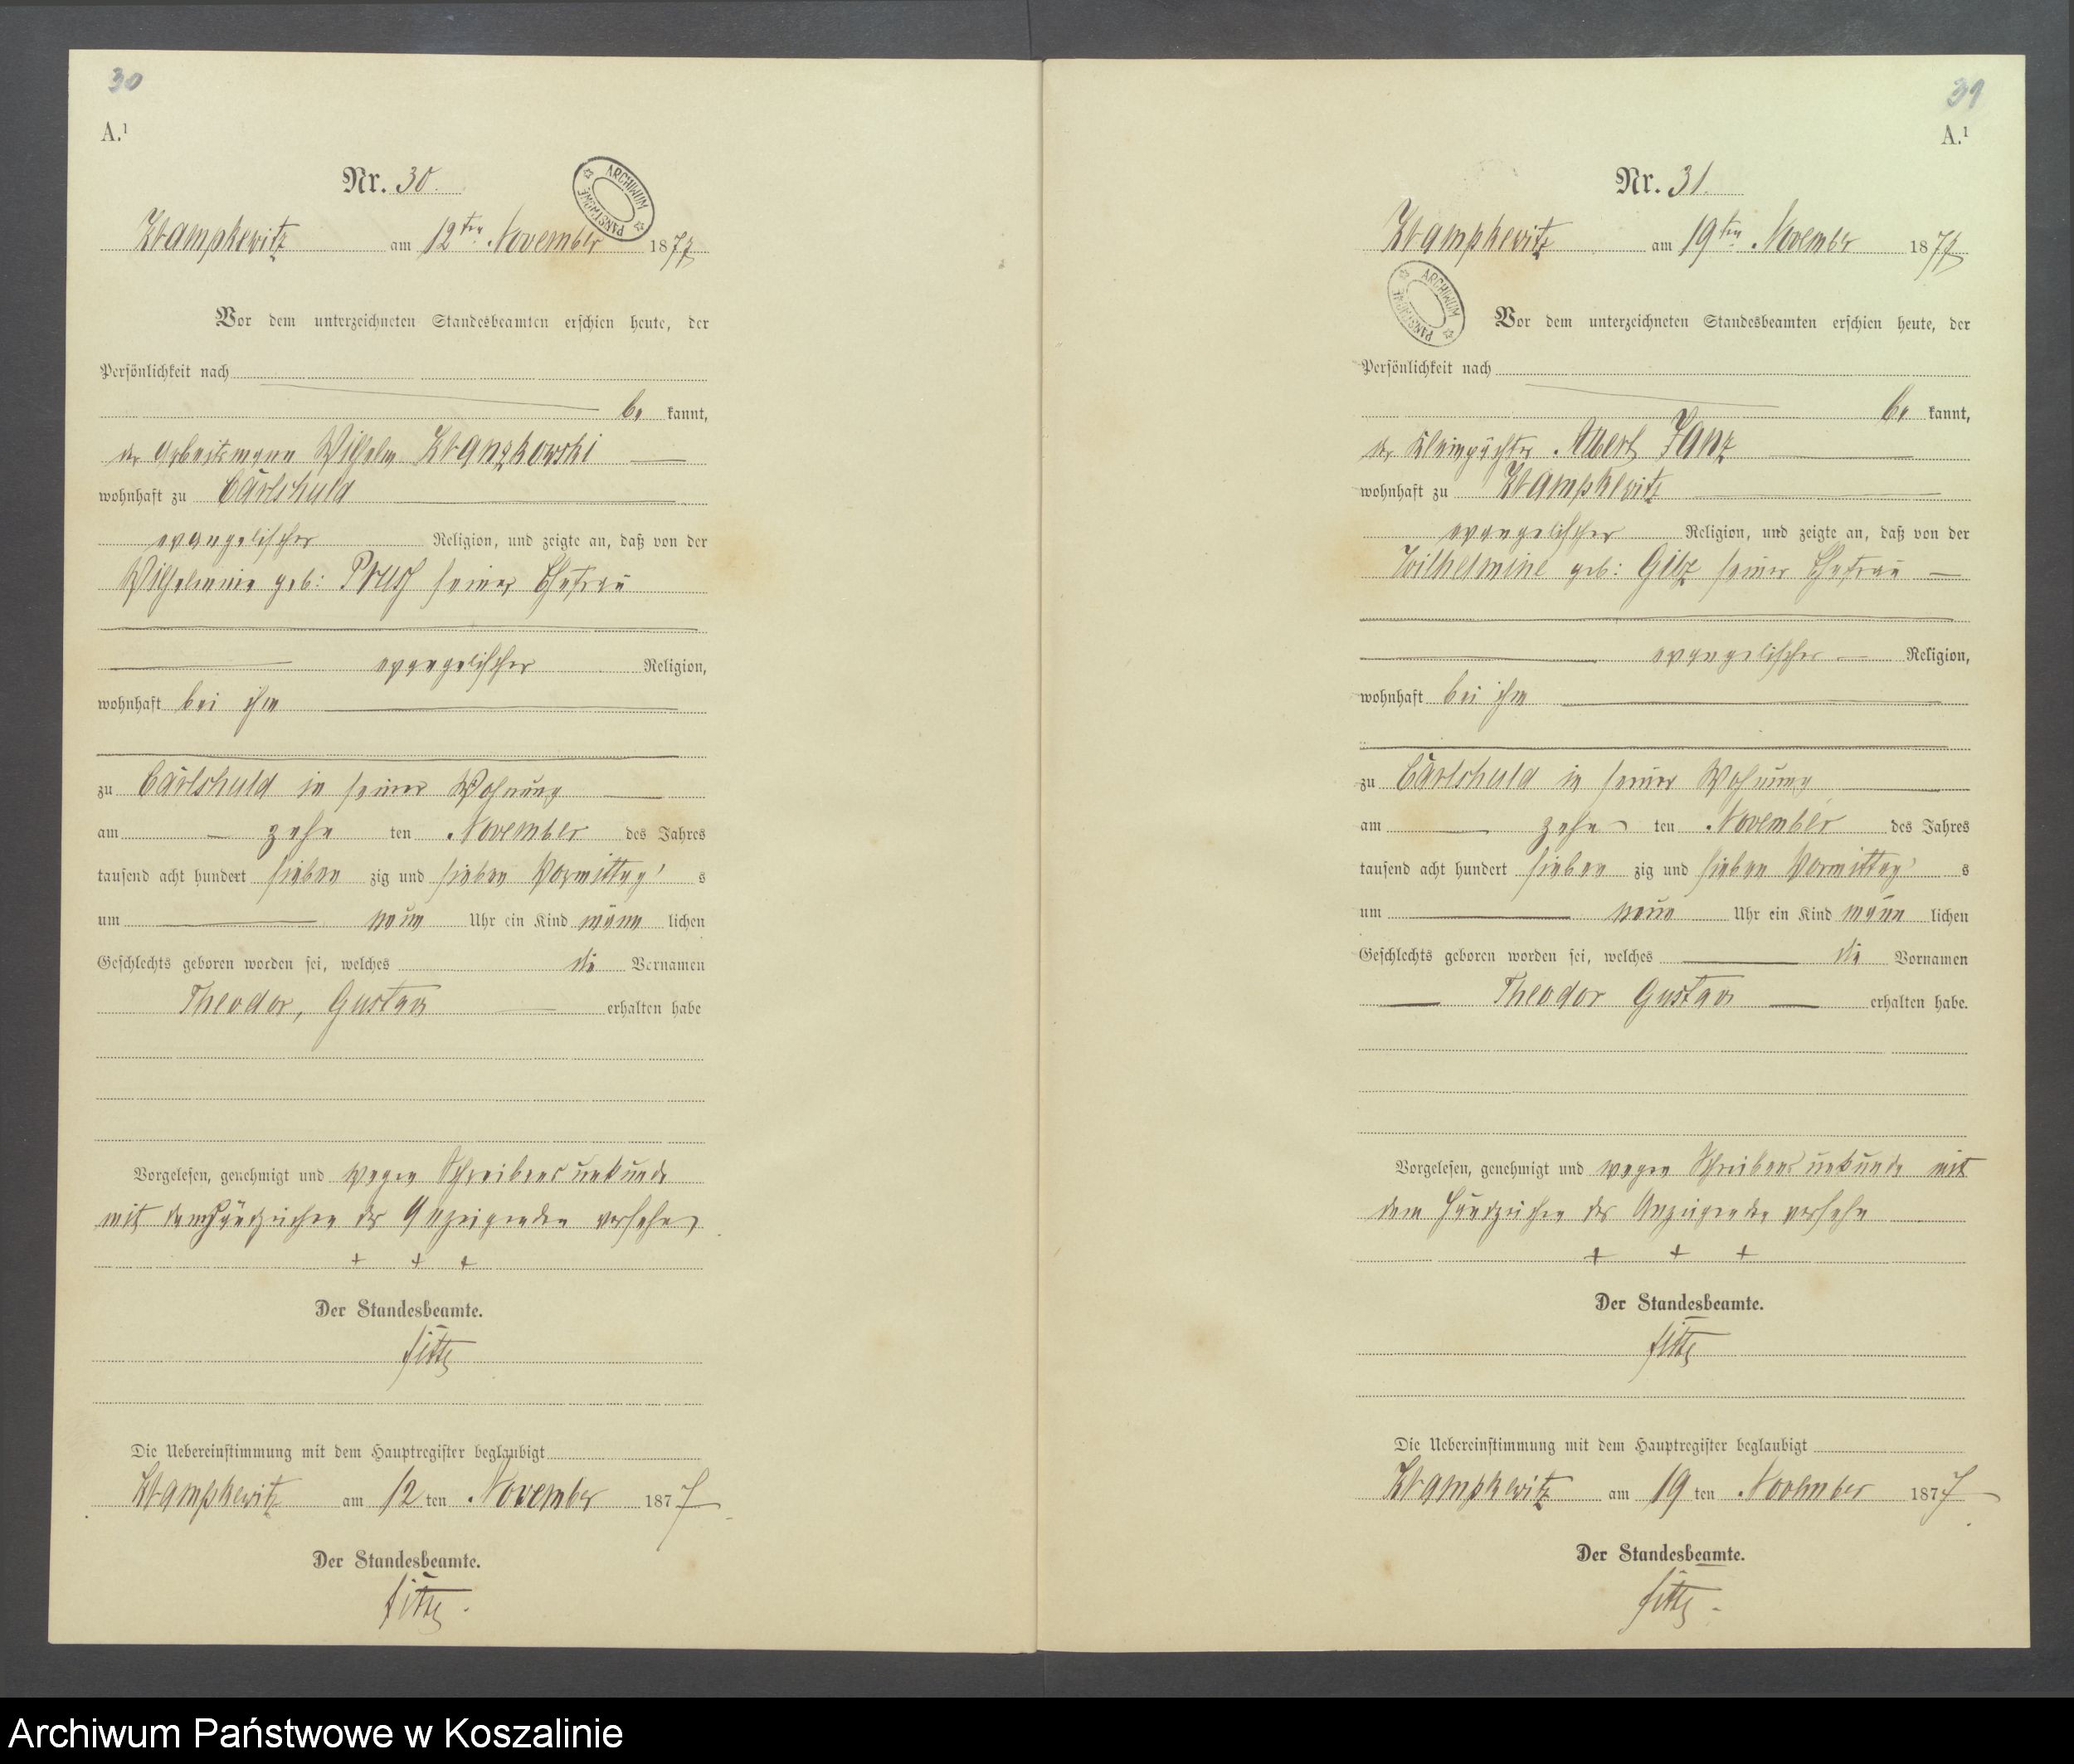 30
A.¹
Nr. 30.
ARCHIWUM PAŃSTWOWE
Krampkewitz am 12ten November 1877
Vor dem unterzeichneten Standesbeamten erschien heute, der
Persönlichkeit nach
be kannt,
der Arbeitsmann Wilhelm Kranzkowski
wohnhaft zu Carlshuld
evangelischer Religion, und zeigte an, daß von der
Wilhelmine geb: seiner Ehefrau
evangelischer Religion,
wohnhaft bei ihm
zu Carlshuld in seiner Wohnung
am zehn ten November des Jahres
tausend acht hundert sieben zig und sieben Vormittag s
um neun Uhr ein Kind männ lichen
Geschlechts geboren worden sei, welches die Vornamen
Theodor, Gustav erhalten habe
Vorgelesen, genehmigt und wegen Schreibensunkunde
mit dem Handzeichen des Anzeigenden versehen
+ + +
Der Standesbeamte.
Die Uebereinstimmung mit dem Hauptregister beglaubigt
Krampkewitz am 12 ten November 1877
Der Standesbeamte.
31
A.¹
Nr. 31.
Krampkewitz am 19ten November 1877
ARCHIWUM PAŃSTWOWE
Vor dem unterzeichneten Standesbeamten erschien heute, der
Persönlichkeit nach
be kannt,
der Kleinpächter Albert Janz
wohnhaft zu Krampkewitz
evangelischer Religion, und zeigte an, daß von der
Wilhelmine geb: Gilz seiner Ehefrau
evangelischer Religion,
wohnhaft bei ihm
zu Carlshuld in seiner Wohnung
am zehn ten November des Jahres
tausend acht hundert sieben zig und sieben Vormittag s
um neun Uhr ein Kind männ lichen
Geschlechts geboren worden sei, welches die Vornamen
Theodor Gustav erhalten habe.
Vorgelesen, genehmigt und wegen Schreibensunkunde mit
dem Handzeichen des Anzeigenden versehn
+ + +
Der Standesbeamte.
Die Uebereinstimmung mit dem Hauptregister beglaubigt
Krampkewitz am 19 ten November 1877
Der Standesbeamte.
Archiwum Państwowe w Koszalinie